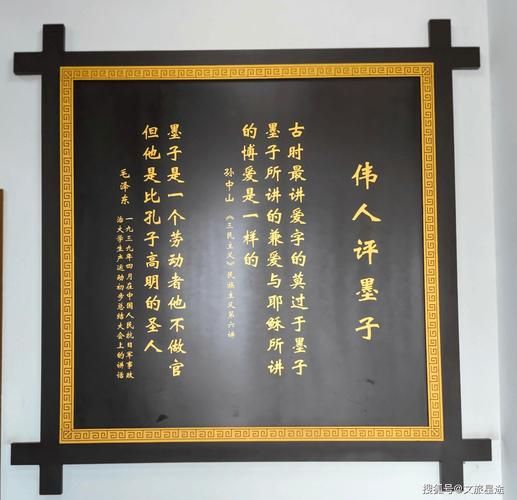 伟人评墨子
古时最讲爱字的莫过于墨子
墨子所讲的兼爱与耶稣所讲
的博爱是一样的
孙中山 《三民主义》民族主义第六讲
墨子是一个劳动者他不做官
但他是比孔子高明的圣人
毛泽东 一九三九年四月在中国人民抗日军事政
治大学生产运动初步总结大会上的讲话
搜狐号@文旅星途